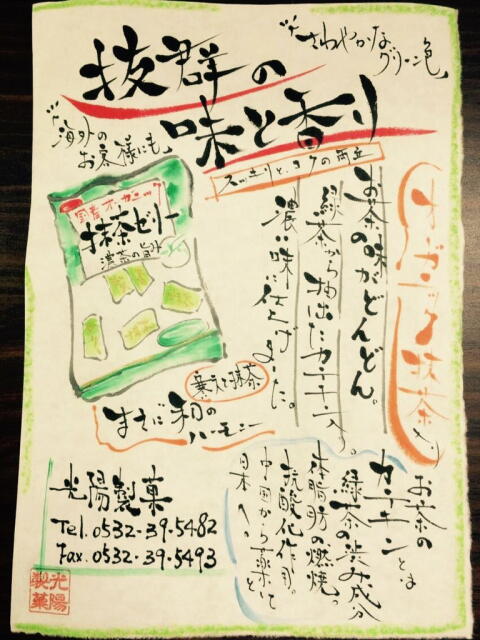 さわやかな
グリーン色
抜群の
味と香り
海外の
お客様にも
スッキリと、コクの両立
オーガニック抹茶
お茶の味がどんどん。
緑茶から抽出したカテキン入り。
濃い味に仕上げました。
国産オーガニック
抹茶ゼリー
濃茶の旨み
寒天と抹茶
まさに和の
ハーモニー
お茶の
カテキンとは
緑茶の渋み成分
体脂肪の燃焼。
抗酸化作用。
中国から薬として
日本へ。
光陽製菓
Tel.0532-39-5482
Fax.0532-39-5493
光陽
製菓